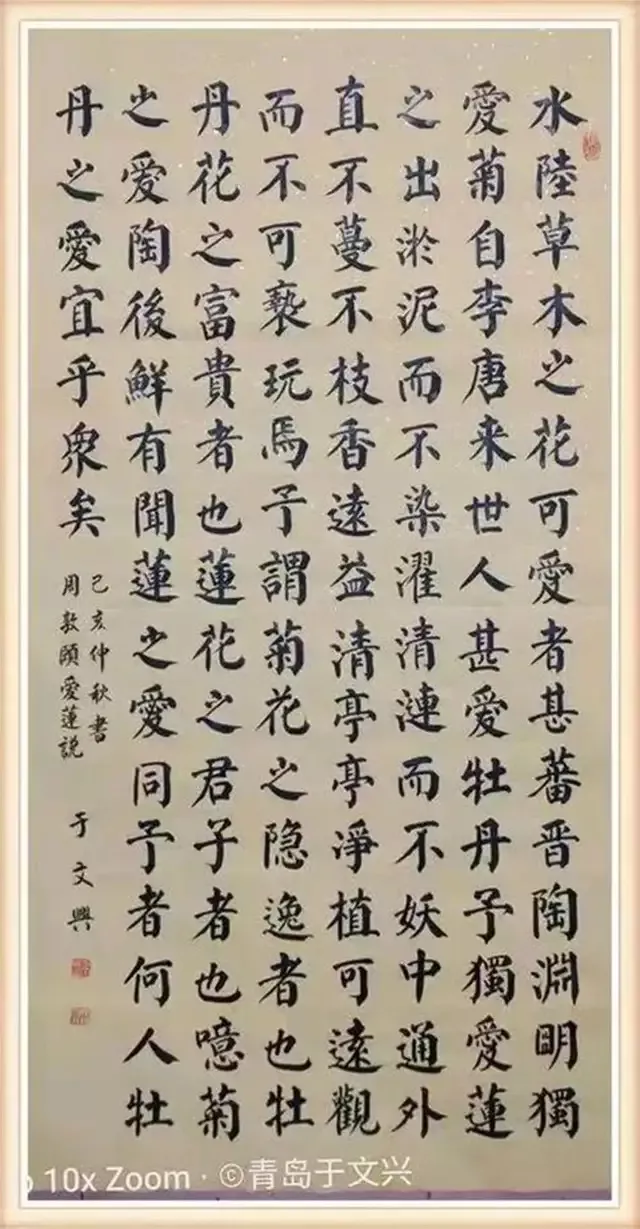 水陸草木之花可愛者甚蕃晋陶淵明獨
愛菊自李唐来世人甚愛牡丹予獨愛蓮
之出淤泥而不染濯清漣而不妖中通外
直不蔓不枝香遠益清亭亭凈植可遠觀
而不可褻玩焉予謂菊花之隐逸者也牡
丹花之富貴者也蓮花之君子者也噫菊
之愛陶後鮮有聞蓮之愛同予者何人牡
丹之愛宜乎衆矣
己亥仲秋書
周敦頤愛蓮説
于文興
10x Zoom · ©青岛于文兴